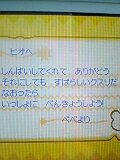 ピオへ
しんぱいしてくれて ありがとう
それにしても すばらしいクスリだ
なおったら
いっしょに べんきょうしよう!
ぺぺより